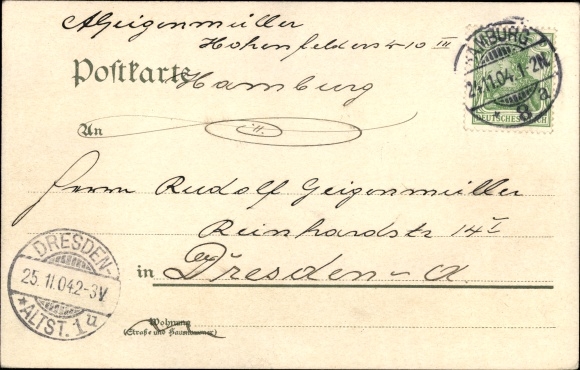 A Geigenmüller
Hohenfelderstr 10 III
Postkarte Hamburg
HAMBURG
24.11.04. 1-2N.
* 8 a
DEUTSCHES REICH
An
Herrn Rudolf Geigenmüller
Reinhardstr 14 I
in Dresden - A.
DRESDEN-
25.11.04 2-3V
* ALTST. 1 u
Wohnung
(Straße und Hausnummer)